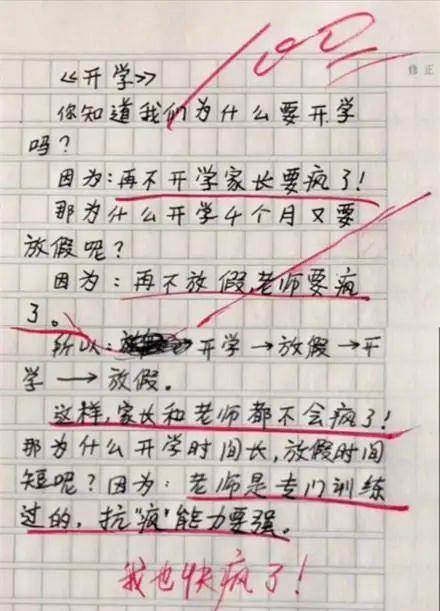 100
修正
《开学》
你知道我们为什么要开学
吗？
因为：再不开学家长要疯了！
那为什么开学4个月又要
放假呢？
因为：再不放假，老师要疯
了。
所以：开学→放假→开
学→放假。
这样，家长和老师都不会疯了！
那为什么开学时间长，放假时间
短呢？因为：老师是专门训练
过的，抗"疯"能力要强。
我也快疯了！